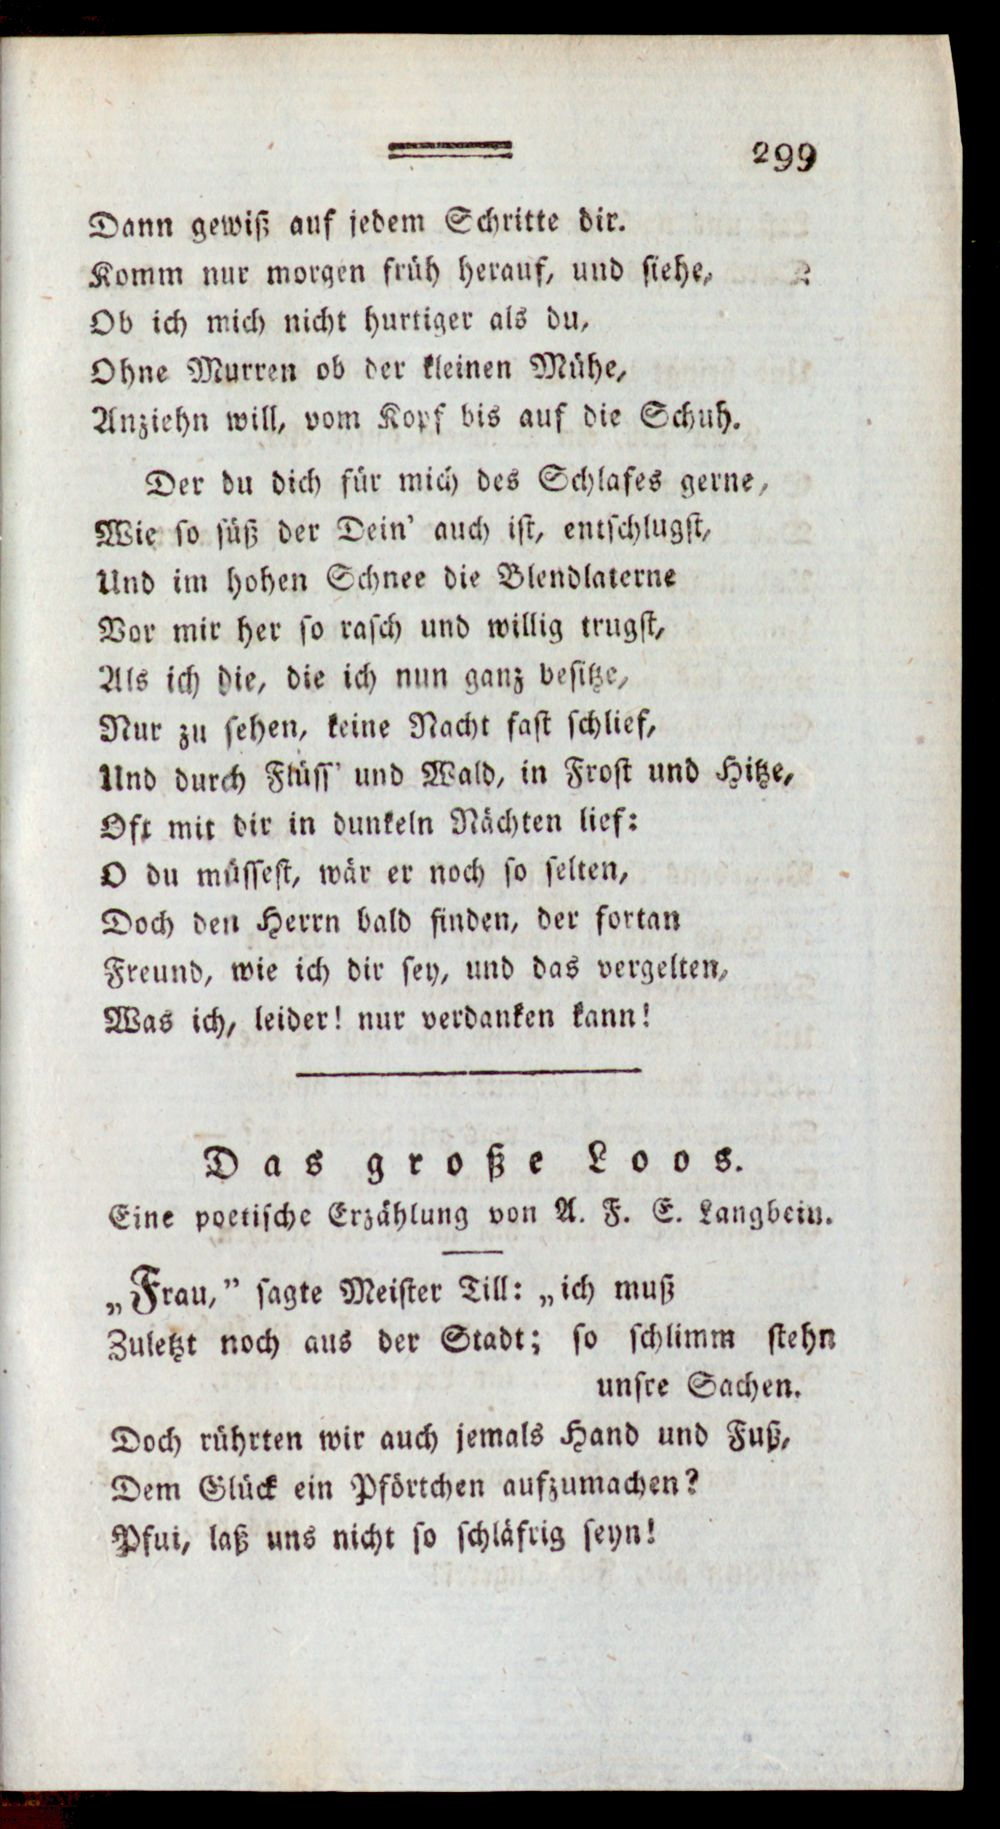 299
Dann gewiß auf jedem Schritte dir.
Komm nur morgen früh herauf, und siehe,
Ob ich mich nicht hurtiger als du,
Ohne Murren ob der kleinen Mühe,
Anziehn will, vom Kopf bis auf die Schuh.
Der du dich für mich des Schlafes gerne,
Wie so süß der Dein' auch ist, entschlugst,
Und im hohen Schnee die Blendlaterne
Vor mir her so rasch und willig trugst,
Als ich die, die ich nun ganz besitze,
Nur zu sehen, keine Nacht fast schlief,
Und durch Flüss' und Wald, in Frost und Hitze,
Oft mit dir in dunkeln Nächten lief:
O du müssest, wär er noch so selten,
Doch den Herrn bald finden, der fortan
Freund, wie ich dir sey, und das vergelten,
Was ich, leider! nur verdanken kann!
Das große Loos.
Eine poetische Erzählung von A. F. E. Langbein.
„Frau,” sagte Meister Till: „ich muß
Zuletzt noch aus der Stadt; so schlimm stehn
unsre Sachen.
Doch rührten wir auch jemals Hand und Fuß,
Dem Glück ein Pförtchen aufzumachen?
Pfui, laß uns nicht so schläfrig seyn!